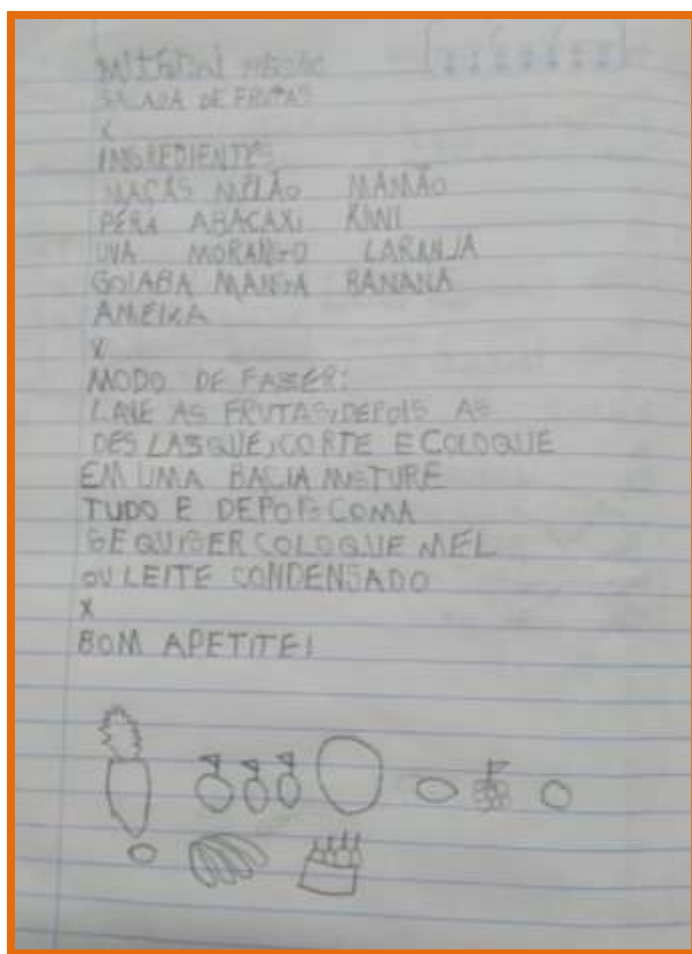 MATERIAL
SALADA DE FRUTAS
X
INGREDIENTES
MAÇÃS MELÃO MAMÃO
PÊRA ABACAXI KIWI
UVA MORANGO LARANJA
GOIABA MANGA BANANA
AMEIXA
X
MODO DE FASER:
LAVE AS FRUTAS, DEPOIS AS
DESCASQUE, CORTE E COLOQUE
EM UMA BACIA MISTURE
TUDO E DEPOIS COMA
SE QUISER COLOQUE MEL
OU LEITE CONDENSADO
X
BOM APETITE!